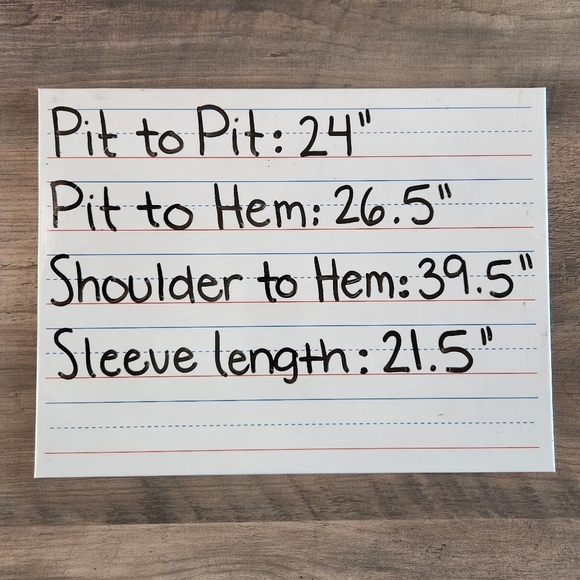 Pit to Pit: 24"
Pit to Hem: 26.5"
Shoulder to Hem: 39.5"
Sleeve length: 21.5"